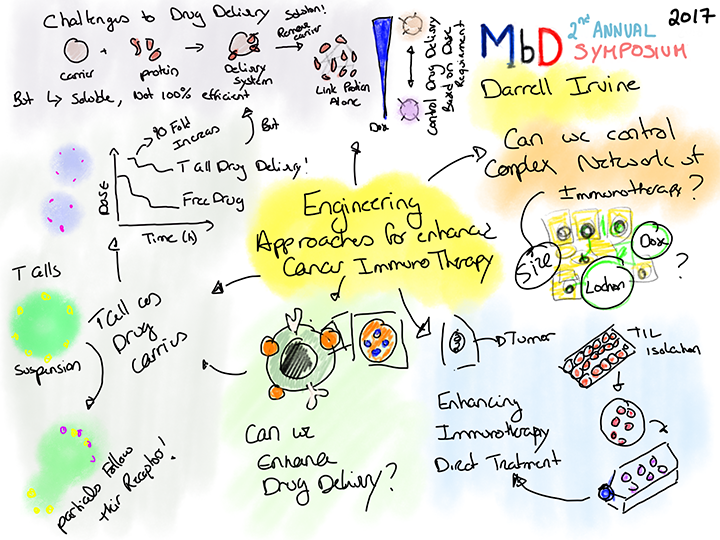 Challenges to Drug Delivery
Solution!
Remove
carrier
carrier
protein
Delivery
System
Link Protein
Alone
But ↳ Soluble, Not 100% efficient
Dox
Control Drug Delivery
Based on Dose
Requirement
MbD
2nd ANNUAL
SYMPOSIUM
2017
Darrell Irvine
Can we control
Complex Network of
Immunotherapy?
Size
Dox
?
But
90 Fold
Increas
DOSE
T Cell Drug Delivery!
Free Drug
Time (h)
Engineering
Approaches for enhanced
Cancer ImmunoTherapy
T Cells
Suspension
T Cell as
Drug
Carriers
particals Follow
their Receptor!
Can we
Enhance
Drug Delivery?
Tumor
TIL
isolation
Enhancing
Immunotherapy
Direct Treatment